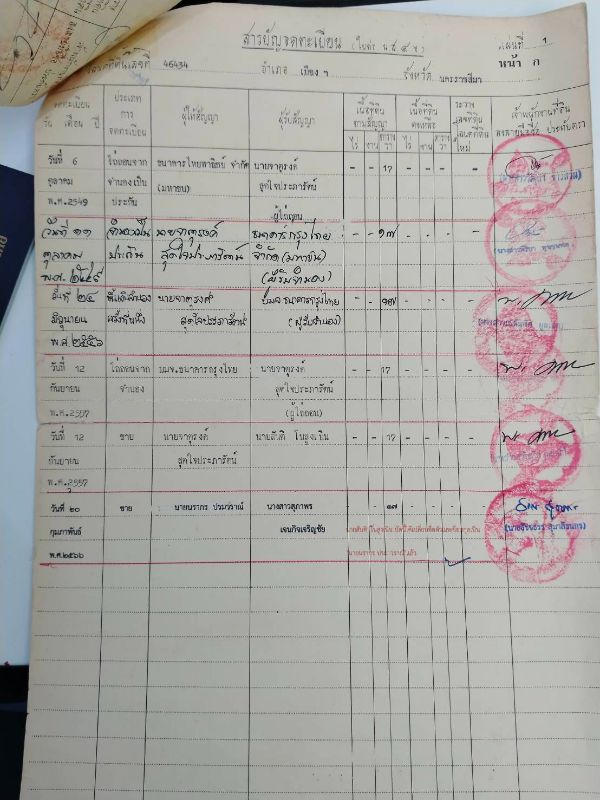 สารบัญจดทะเบียน (ใบต่อ น.ส.๔ จ.) แผ่นที่ 1
เลขที่ 46434 อำเภอ เมือง ฯ จังหวัด นครราชสีมา หน้า ก
จดทะเบียน วัน เดือน ปี
ประเภทการจดทะเบียน
ผู้ให้สัญญา
ผู้รับสัญญา
เนื้อที่ดินตามสัญญา
ไร่ งาน ตารางวา
เนื้อที่ดินคงเหลือ
ไร่ งาน ตารางวา
ระวาง เลขที่ดิน โฉนดที่ดินใหม่
เจ้าพนักงานที่ดิน ลงลายมือชื่อ ประทับตรา
วันที่ 6 ไถ่ถอนจาก ธนาคารไทยพาณิชย์ จำกัด นายจาตุรงค์ - - 17 - - - -
ตุลาคม จำนองเป็น (มหาชน) สุดใจประภารัตน์
พ.ศ.2549 ประกัน ผู้ไถ่ถอน
วันที่ ๑๑ จำนองเป็น นายจาตุรงค์ ธนาคารกรุงไทย - - ๑๗ - - - -
ตุลาคม ประกัน สุดใจประภารัตน์ จำกัด (มหาชน)
พ.ศ. ๒๕๔๙ (ผู้รับจำนอง)
วันที่ ๒๔ ขึ้นเงินจำนอง นายจาตุรงค์ บมจ.ธนาคารกรุงไทย - - ๑๗ - - - -
มิถุนายน ครั้งที่หนึ่ง สุดใจประภารัตน์ (ผู้รับจำนอง)
พ.ศ. ๒๕๕๖
วันที่ 12 ไถ่ถอนจาก บมจ.ธนาคารกรุงไทย นายจาตุรงค์ - - 17 - - - -
กันยายน จำนอง สุดใจประภารัตน์
พ.ศ.2557 (ผู้ไถ่ถอน)
วันที่ 12 ขาย นายจาตุรงค์ นายสันติ - - 17 - - - -
กันยายน สุดใจประภารัตน์
พ.ศ.2557
วันที่ ๒๐ ขาย นายนรากร ปรมวราณ์ นางสาวสุภาพร - - ๑๗ - - - -
กุมภาพันธ์ เจนกิจเจริญชัย
พ.ศ.๒๕๖๖